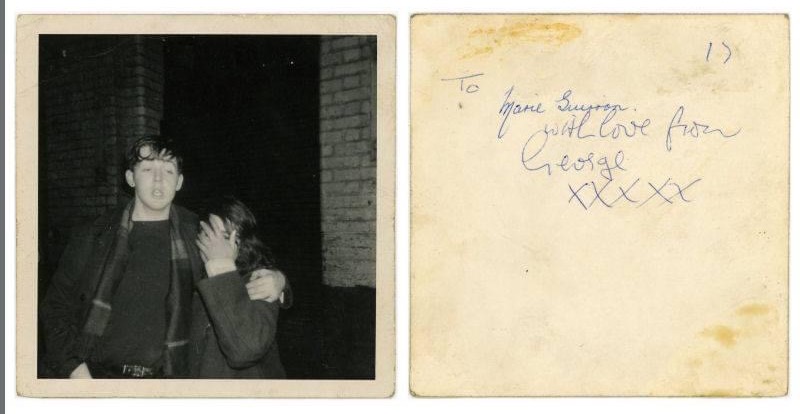 17
To
Marie
with love from
George
XXXXX